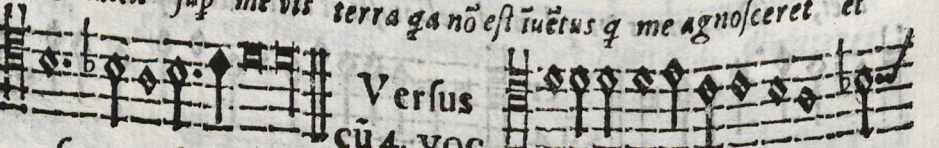 me vis terra q̃a nõ eſt ĩuẽtus q̃ me agnoſceret et
Verſus
cũ 4. voc